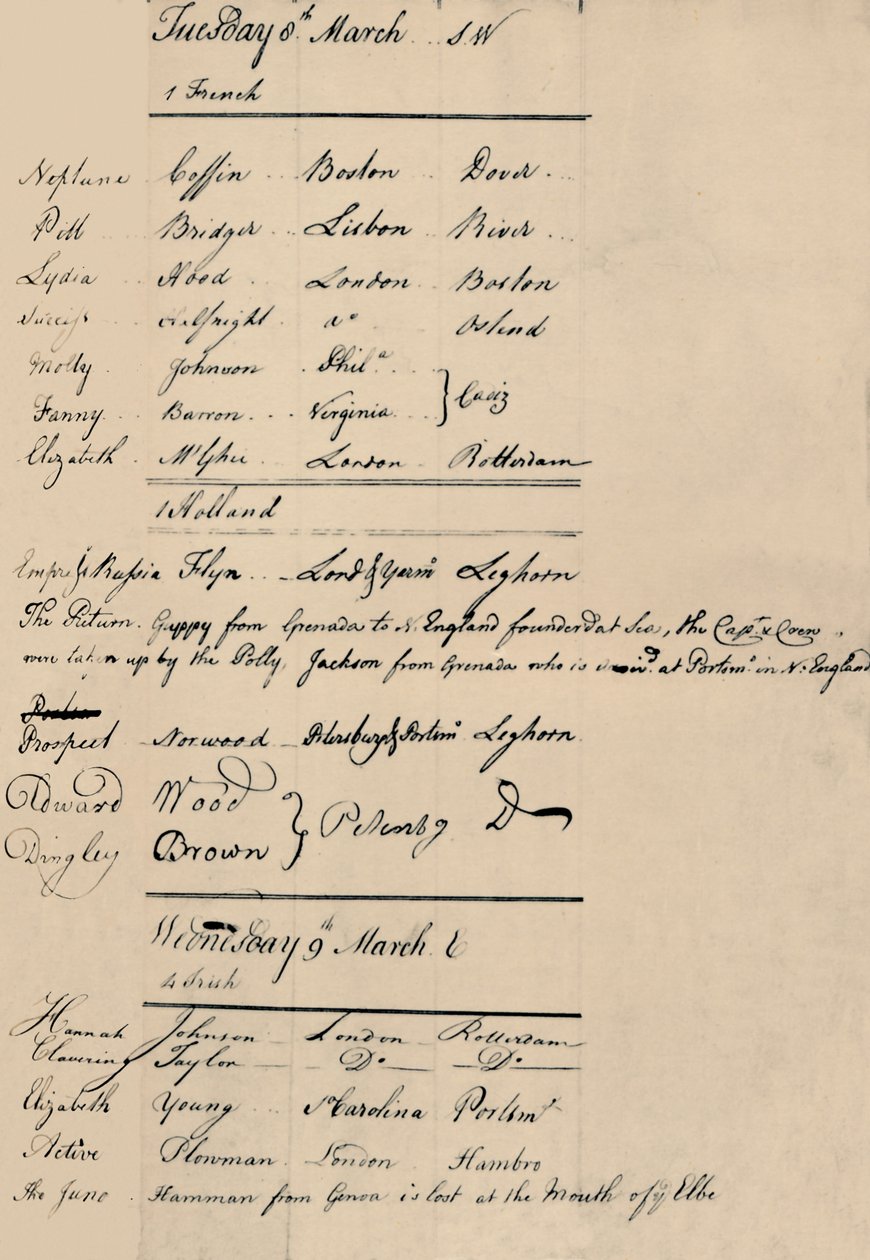 Tuesday 8.th March .. S.W
1 French
Neptune Coffin .. Boston .. Dover ...
Pitt Bridger ... Lisbon .. River ...
Lydia Hood .. London .. Boston
Success .. .. Do Ostend
Molly . Johnson . Phil.a ...
Fanny .. Barron ... Virginia ... } Cadiz
Elizabeth . McGhie .. London .. Rotterdam
1 Holland
Russia Flyn .. Lond & Yarmo Leghorn
The Return . Guppy from Grenada to N. England founderd at Sea, the Capt. & Crew
were taken up by the Polly, Jackson from Grenada who is at Portsmo. in N. England
Prospect Norwood Petersburg & Portsmo Leghorn
Edward Wood
Dingley Brown } Petersbg Do
Wednesday 9th March. E
4 Irish
Hannah Johnson London Rotterdam
Clavering Taylor Do. Do.
Elizabeth Young ... So Carolina Portsmo
Active Plowman . London Hambro
The Juno . Hamman from Genoa is lost at the Mouth of ye Elbe